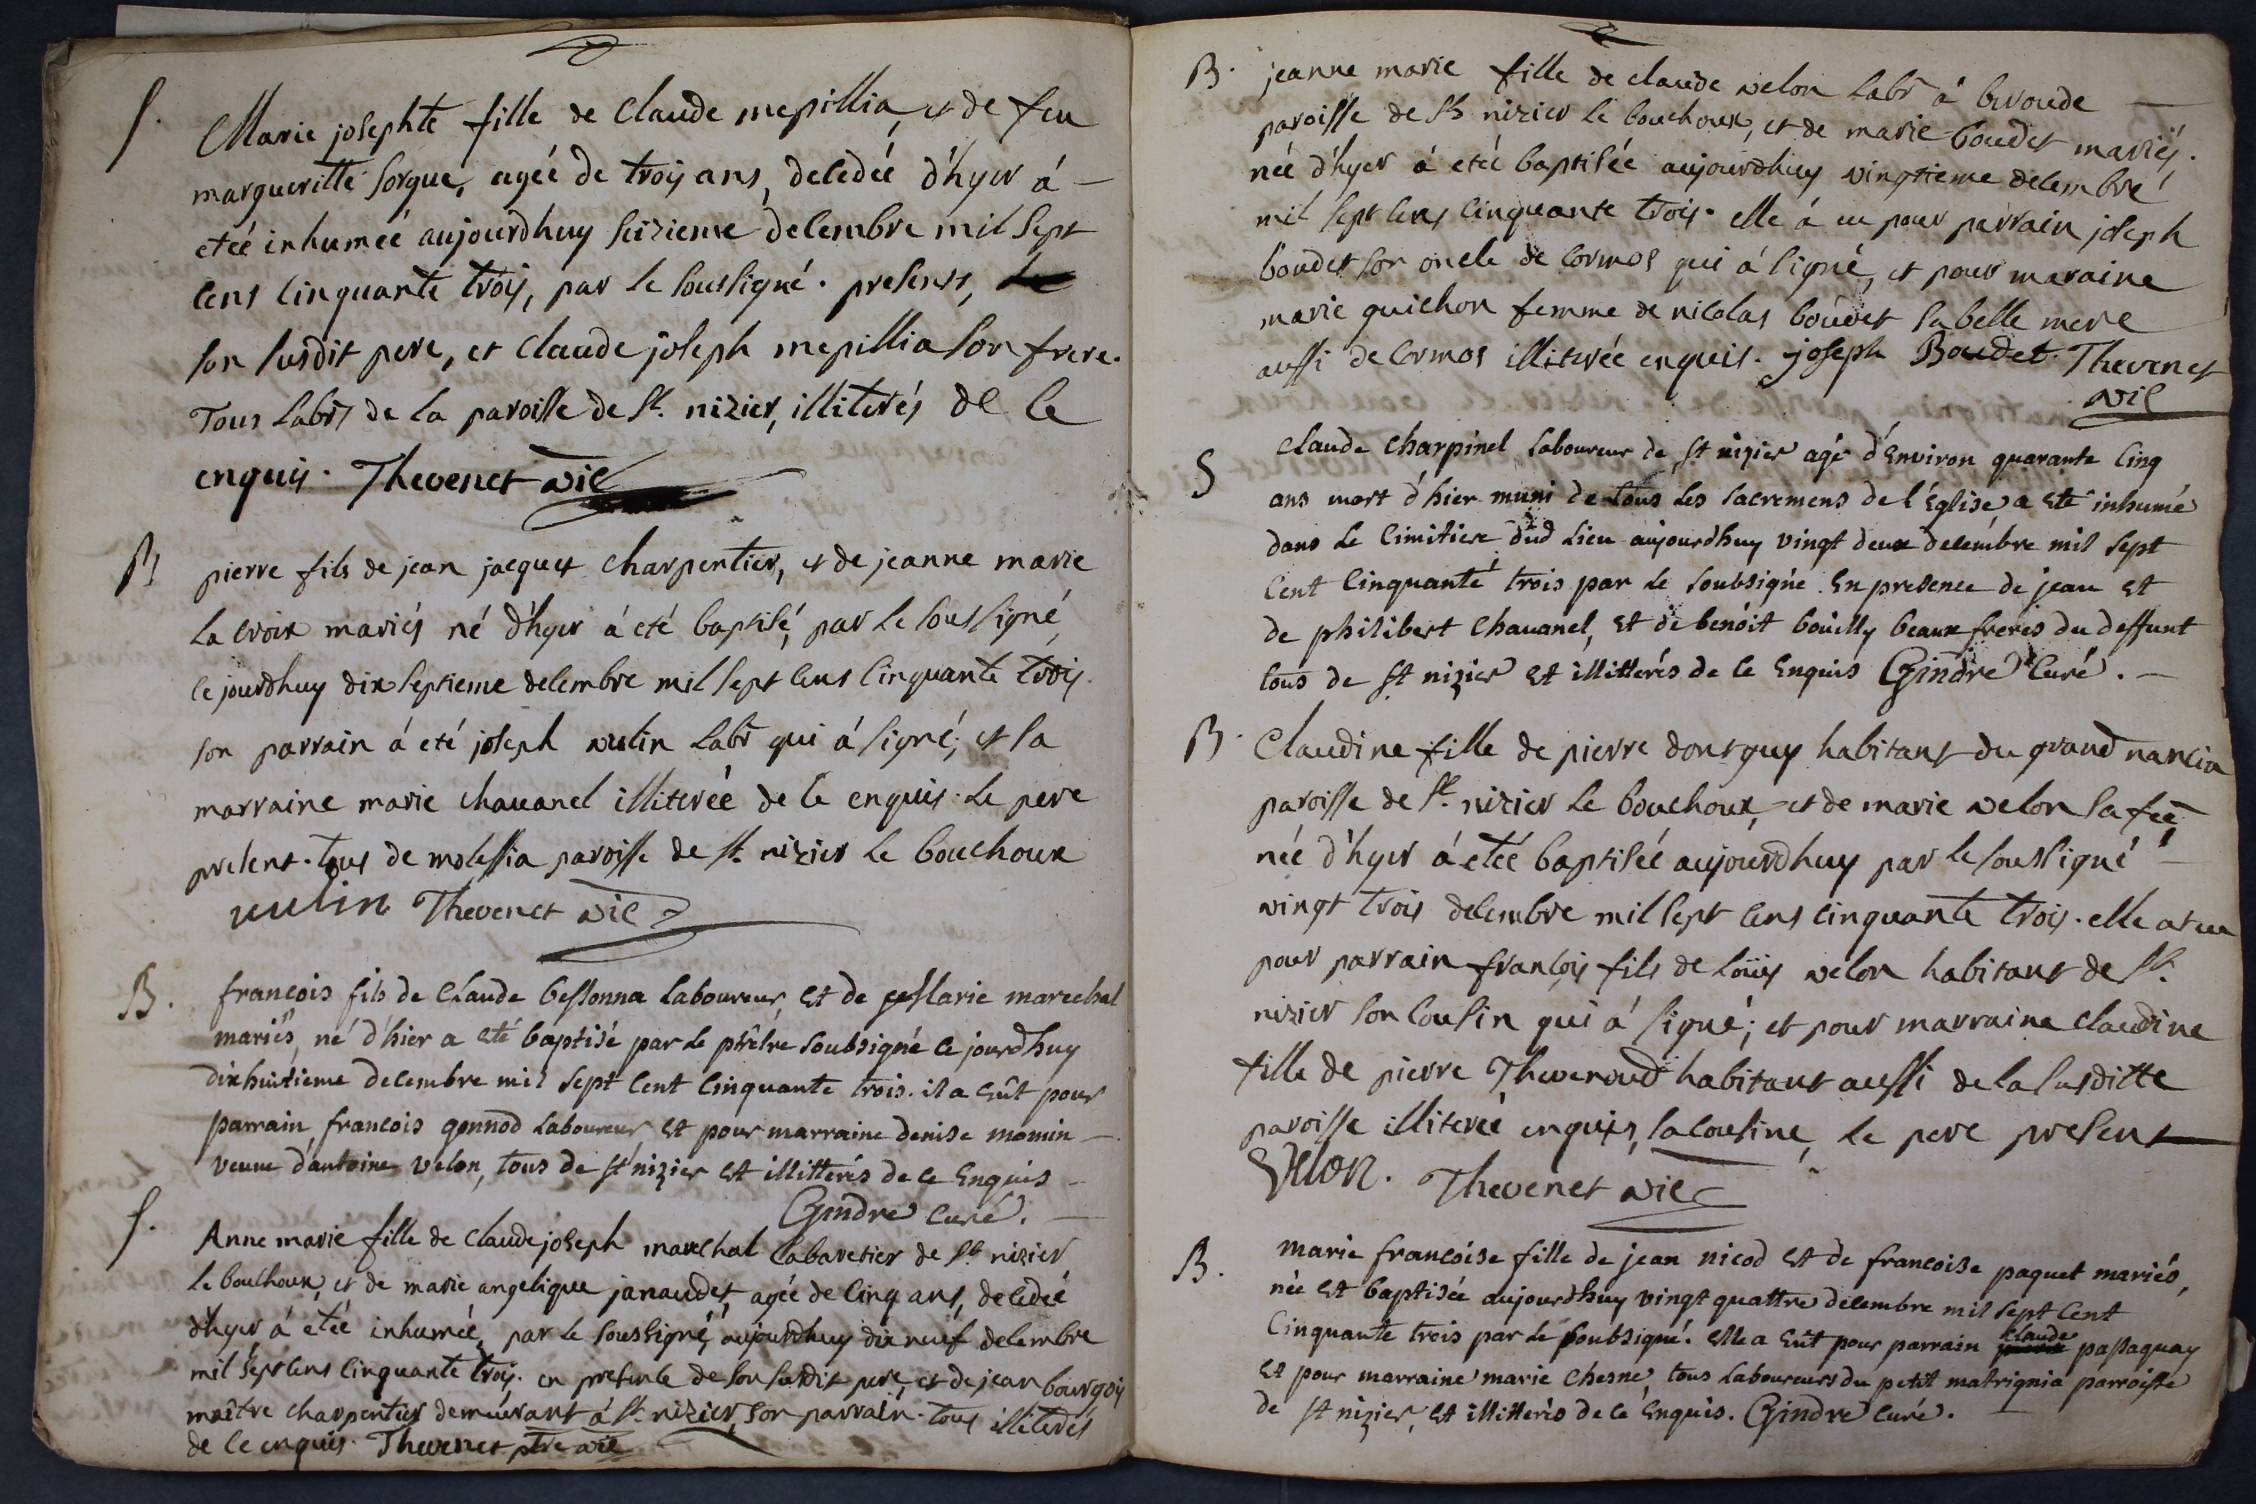 S.
Marie josephte fille de Claude mepillia, et de feu
margueritte sorgue, ageé de trois ans, decedeé d'hyer á
eteé inhumeé aujourdhuy seizieme decembre mil sept
cens cinquante trois, par le soussigné. presents,
son susdit pere, et Claude joseph mepillia son frere.
Tous labrs de la paroisse de St. nizier, illiterés de ce
enquis. Thevenet vic
B
pierre fils de jean jacques Charpentier, et de jeanne marie
la croix mariés né d'hyer á eté baptisé, par le soussigné,
cejourdhuy dix septieme decembre mil sept cens cinquante trois.
son parrain á eté joseph vulin labr qui á signé; et sa
marraine marie chavanel illitereé de ce enquis. Le pere
present. tous de molessia paroisse de St. nizier le bouchoux
vulin Thevenet vic
B.
francois fils de Claude bessonna laboureur et de marechal
mariés, né d'hier a eté baptisé par le prêtre soubsigné ce jourdhuy
dixhuitieme decembre mil sept cent cinquante trois. il a eût pour
parrain, francois gonnod laboureur et pour marraine denise momin
veuve d'antoine velon, tous de st nizier et illitterés de ce enquis
Gindre curé.
S.
Anne marie fille de Claude joseph marechal Cabaretier de St. nizier
le bouchoux, et de marie angelique janaudet, ageé de cinq ans, decedeé
d'hyer á eteé inhumeé, par le soussigné, aujourdhuy dix neuf decembre
mil sept cens cinquante trois. en presence de son susdit pere, et de jean bourgois
maître charpentier demeurant á St. nizier, son parrain. tous illiterés
de ce enquis. Thevenet ptre vic
B.
jeanne marie fille de claude velon labr á biroude
paroisse de St nizier le bouchoux, et de marie boudet mariés.
née d'hyer á eteé baptisée aujourdhuy vingtieme decembre
mil sept cens cinquante trois. elle á eu pour parrain joseph
boudet son oncle de cormos qui á signé, et pour maraine
marie guichon femme de nicolas boudet sa belle mere
aussi de cormos illitereé enquis. joseph Boudet. Thevenet
vic
S
Claude Charpinel laboureur de St nizier agé d'Environ quarante cinq
ans mort d'hier muni de tous les sacremens de l'Église a eté inhumé
dans le cimitiere dud lieu aujourdhuy vingt deux decembre mil sept
cent cinquante trois par le soubsigné En presence de jean et
de philibert Chavanel, et de benoit bouilly beaux freres du deffunt
tous de St nizier et illitterés de ce Enquis Gindre Curé.
B.
Claudine fille de pierre dontguy habitant du grand nancia
paroisse de St. nizier le bouchoux, et de marie velon sa fee
née d'hyer á eteé baptiseé aujourdhuy par le soussigné
vingt trois decembre mil sept cens cinquante trois. elle at eu
pour parrain françois fils de loüis velon habitant de St.
nizier son cousin qui á signé; et pour marraine claudine
fille de pierre Thevenoud habitant aussi de la susditte
paroisse illitereé enquis, sa cousine, Le pere present
Velon. Thevenet vic
B.
marie francoise fille de jean nicod et de francoise paquet mariés,
née et baptisée aujourdhuy vingt quattre decembre mil sept cent
Cinquante trois par le soubsigné. elle a eüt pour parrain claude passaquay
et pour marraine marie Chesne, tous laboureurs du petit matrignia parroisse
de St nizier, et illitterés de ce enquis. Gindre curé.